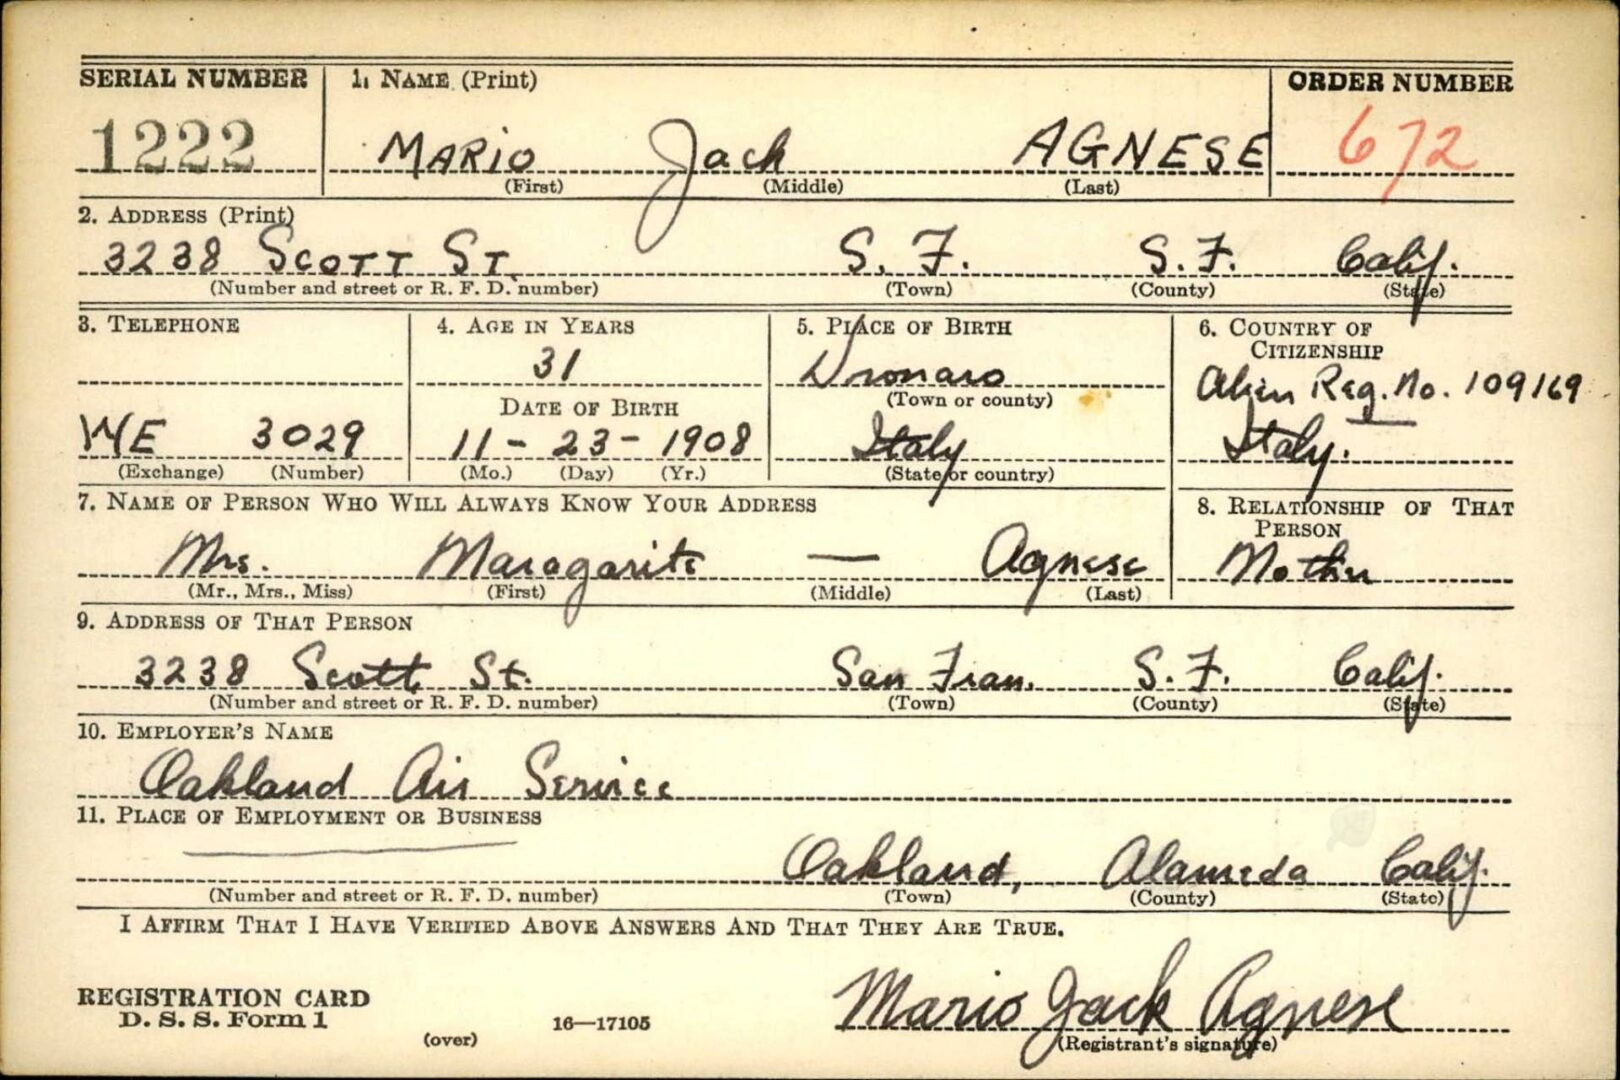 SERIAL NUMBER 1. NAME (Print) ORDER NUMBER
1222 MARIO Jack AGNESE 672
(First) (Middle) (Last)
2. ADDRESS (Print)
3238 SCOTT ST. S. F. S. F. Calif.
(Number and street or R. F. D. number) (Town) (County) (State)
3. TELEPHONE 4. AGE IN YEARS 5. PLACE OF BIRTH 6. COUNTRY OF CITIZENSHIP
31 Dronaro Alien Reg. No. 109169
DATE OF BIRTH (Town or county)
WE 3029 11-23-1908 Italy Italy.
(Exchange) (Number) (Mo.) (Day) (Yr.) (State or country)
7. NAME OF PERSON WHO WILL ALWAYS KNOW YOUR ADDRESS 8. RELATIONSHIP OF THAT PERSON
Mrs. Maragarite — Agnese Mother
(Mr., Mrs., Miss) (First) (Middle) (Last)
9. ADDRESS OF THAT PERSON
3238 Scott St. San Fran. S. F. Calif.
(Number and street or R. F. D. number) (Town) (County) (State)
10. EMPLOYER'S NAME
Oakland Air Service
11. PLACE OF EMPLOYMENT OR BUSINESS
Oakland, Alameda Calif.
(Number and street or R. F. D. number) (Town) (County) (State)
I AFFIRM THAT I HAVE VERIFIED ABOVE ANSWERS AND THAT THEY ARE TRUE.
REGISTRATION CARD Mario Jack Agnese
D. S. S. Form 1 (over) 16—17105 (Registrant's signature)